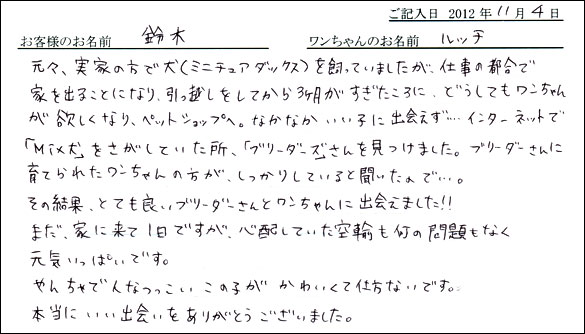 ご記入日 2012年11月4日
お客様のお名前 鈴木 ワンちゃんのお名前 ルッチ
元々、実家の方で犬(ミニチュアダックス)を飼っていましたが、仕事の都合で
家を出ることになり、引っ越しをしてから3ヶ月がすぎたころに、どうしてもワンちゃん
が欲しくなり、ペットショップへ。なかなかいい子に出会えず…インターネットで
「Mix犬」をさがしていた所、「ブリーダーズ」さんを見つけました。ブリーダーさんに
育てられたワンちゃんの方が、しっかりしていると聞いたので…。
その結果、とても良いブリーダーさんとワンちゃんに出会えました!!
まだ、家に来て1日ですが、心配していた空輸も何の問題もなく
元気いっぱいです。
やんちゃで人なつっこいこの子がかわいくて仕方ないです。
本当にいい出会いをありがとうございました。